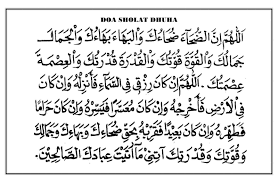 DOA SHOLAT DHUHA
اَللّٰهُمَّ اِنَّ الضُّحَآءَ ضُحَاءُكَ وَالْبَهَاءَ بَهَاءُكَ وَالْجَمَالَ
جَمَالُكَ وَالْقُوَّةَ قُوَّتُكَ وَالْقُدْرَةَ قُدْرَتُكَ وَالْعِصْمَةَ
عِصْمَتُكَ . اَللّٰهُمَّ اِنْ كَانَ رِزْقِى فِى السَّمَآءِ فَأَنْزِلْهُ وَاِنْ كَانَ
فِى اْلاَرْضِ فَأَخْرِجْهُ وَاِنْ كَانَ مُعَسَّرًا فَيَسِّرْهُ وَاِنْ كَانَ حَرَامًا
فَطَهِّرْهُ وَاِنْ كَانَ بَعِيْدًا فَقَرِّبْهُ بِحَقِّ ضُحَاءِكَ وَبَهَاءِكَ وَجَمَالِكَ
وَقُوَّتِكَ وَقُدْرَتِكَ آتِنِيْ مَآاَتَيْتَ عِبَادَكَ الصَّالِحِيْنَ.